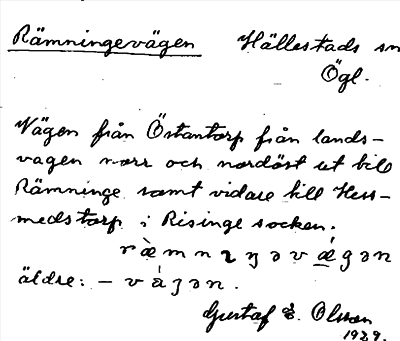 Rämningevägen Hällestads sn
Ögl.
Vägen från Östantorp från lands-
vägen norr och nordöst ut till
Rämninge samt vidare till Hess-
medstorp i Risinge socken.
ræ̀mnıŋəvǽgən
äldre: – vágən.
Gustaf E. Olsson
1929.